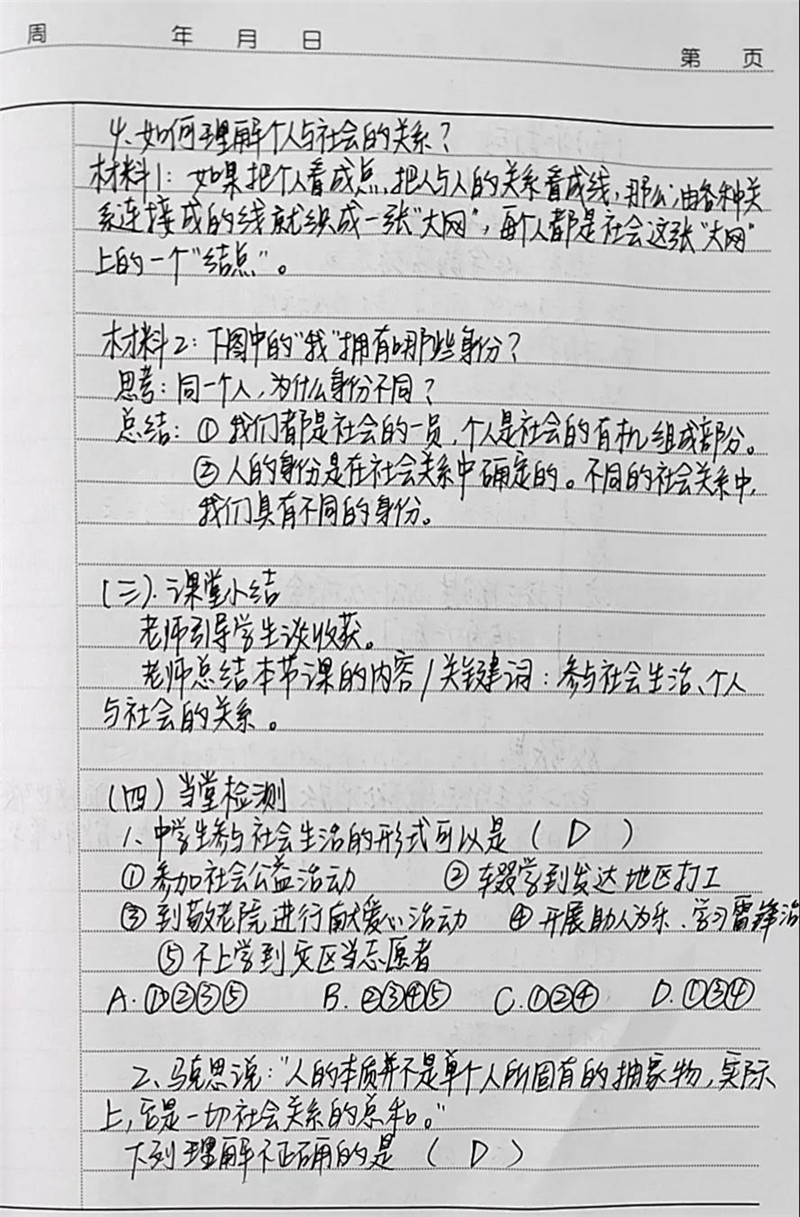 周 年 月 日
第 页
4、如何理解个人与社会的关系？
材料1：如果把个人看成点，把人与人的关系看成线，那么，由各种关
系连接成的线就织成一张“大网”，每个人都是社会这张“大网”
上的一个“结点”。
材料2：下图中的“我”拥有哪些身份？
思考：同一个人，为什么身份不同？
总结：①我们都是社会的一员，个人是社会的有机组成部分。
②人的身份是在社会关系中确定的。不同的社会关系中，
我们具有不同的身份。
（三）.课堂小结
老师引导学生谈收获。
老师总结本节课的内容/关键词：参与社会生活、个人
与社会的关系。
（四）当堂检测
1、中学生参与社会生活的形式可以是（ D ）
①参加社会公益活动 ②辍学到发达地区打工
③到敬老院进行献爱心活动 ④开展助人为乐、学习雷锋活
⑤不上学到灾区当志愿者
A.①②③⑤ B.②③④⑤ C.①②④ D.①③④
2、马克思说：“人的本质并不是单个人所固有的抽象物，实际
上，它是一切社会关系的总和。”
下列理解不正确的是（ D ）